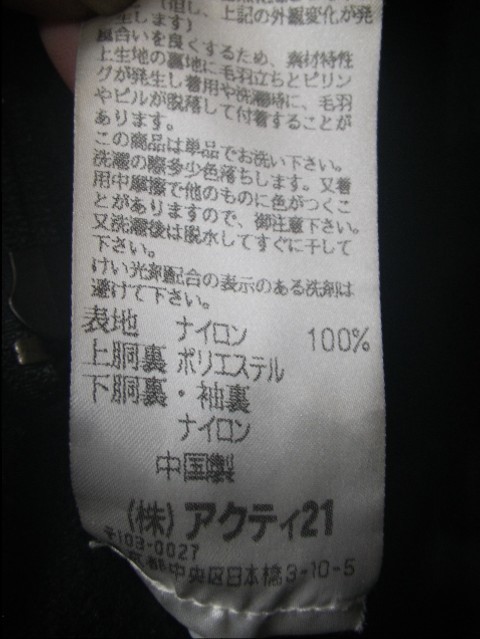 (但し、上記の外観変化が発
生します)
風合いを良くするため、素材特性
上生地の裏地に毛羽立ちとピリン
グが発生し着用や洗濯時に、毛羽
やピルが脱落して付着することが
あります。
この商品は単品でお洗い下さい。
洗濯の際多少色落ちします。又着
用中摩擦で他のものに色がつくこ
とがありますので、御注意下さい。
又洗濯後は脱水してすぐに干して
下さい。
けい光剤配合の表示のある洗剤は
避けて下さい。
表地 ナイロン 100%
上胴裏 ポリエステル
下胴裏・袖裏
ナイロン
中国製
(株)アクティ21
〒103-0027
京都中央区日本橋3-10-5